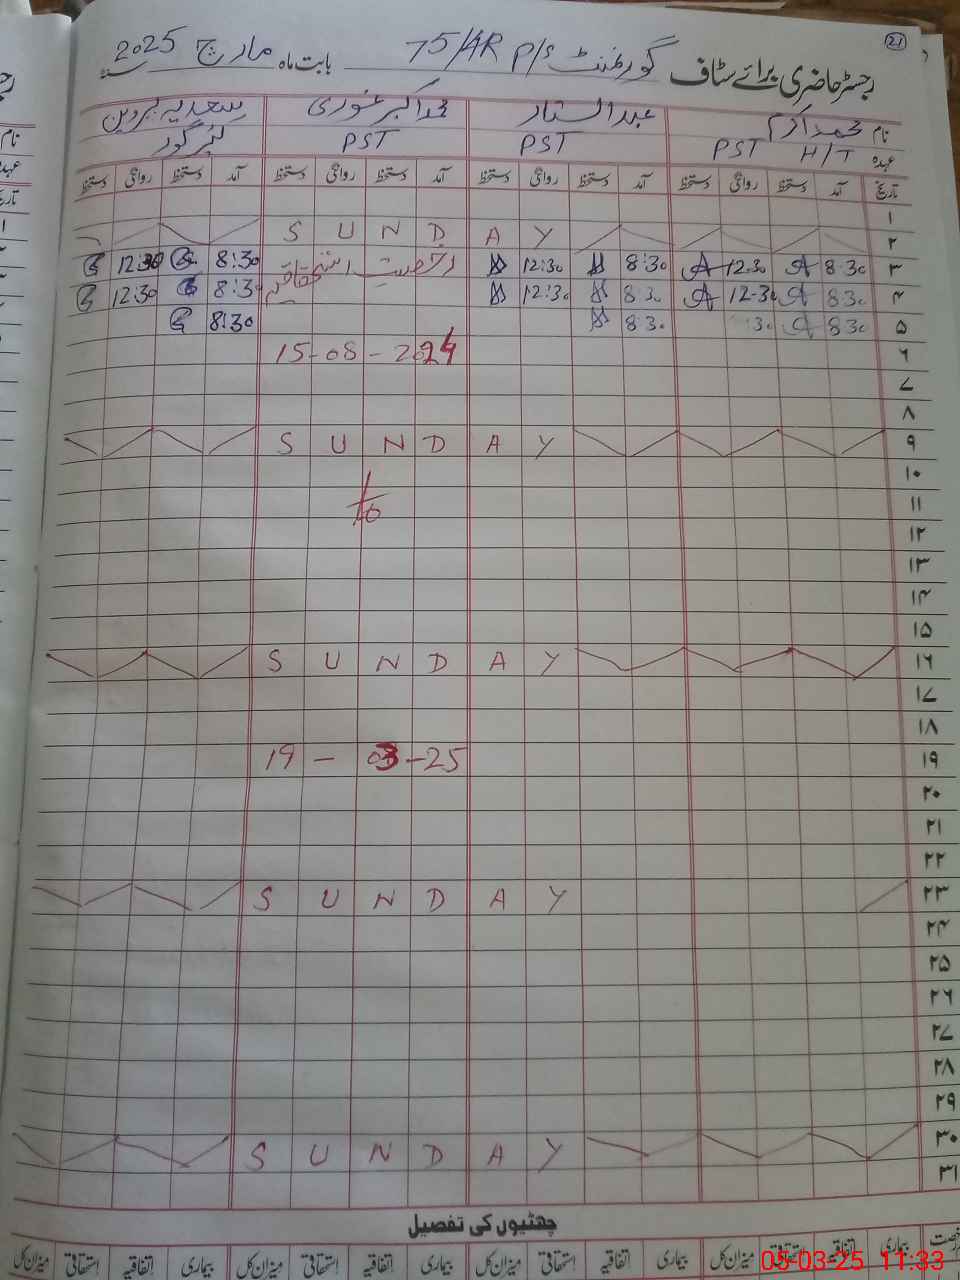 21
رجسٹر حاضری برائے سٹاف گورنمنٹ P/S 75/4R بابت ماہ مارچ سنہ 2025
نام محمد اکرم عبدالستار محمد اکبر غوری سعدیہ پروین
عہدہ PST H/T PST PST کئیر گور
تاریخ آمد دستخط روانگی دستخط آمد دستخط روانگی دستخط آمد دستخط روانگی دستخط آمد دستخط روانگی دستخط
۱
۲ S U N D A Y
۳ 8:30 12:30 8:30 12:30 رخصت استحقاقیہ 8:30 12:30
۴ 8:30 12:30 8:30 12:30 8:30 12:30
۵ 8:30 :30 8:30 8:30
۶ 15-08-2024
۷
۸
۹ S U N D A Y
۱۰
۱۱
۱۲
۱۳
۱۴
۱۵
۱۶ S U N D A Y
۱۷
۱۸
۱۹ 19-03-25
۲۰
۲۱
۲۲
۲۳ S U N D A Y
۲۴
۲۵
۲۶
۲۷
۲۸
۲۹
۳۰ S U N D A Y
۳۱
چھٹیوں کی تفصیل
بیماری اتفاقیہ استحقاقی میزان کل بیماری اتفاقیہ استحقاقی میزان کل بیماری اتفاقیہ استحقاقی میزان کل بیماری اتفاقیہ استحقاقی میزان کل
05-03-25 11:33